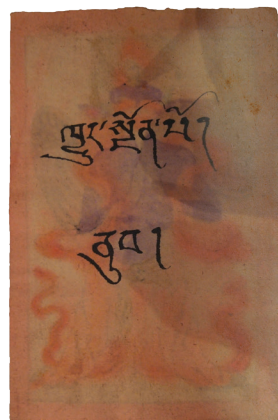 ཁྱུང་སྔོན་པོ།
ནུབ།